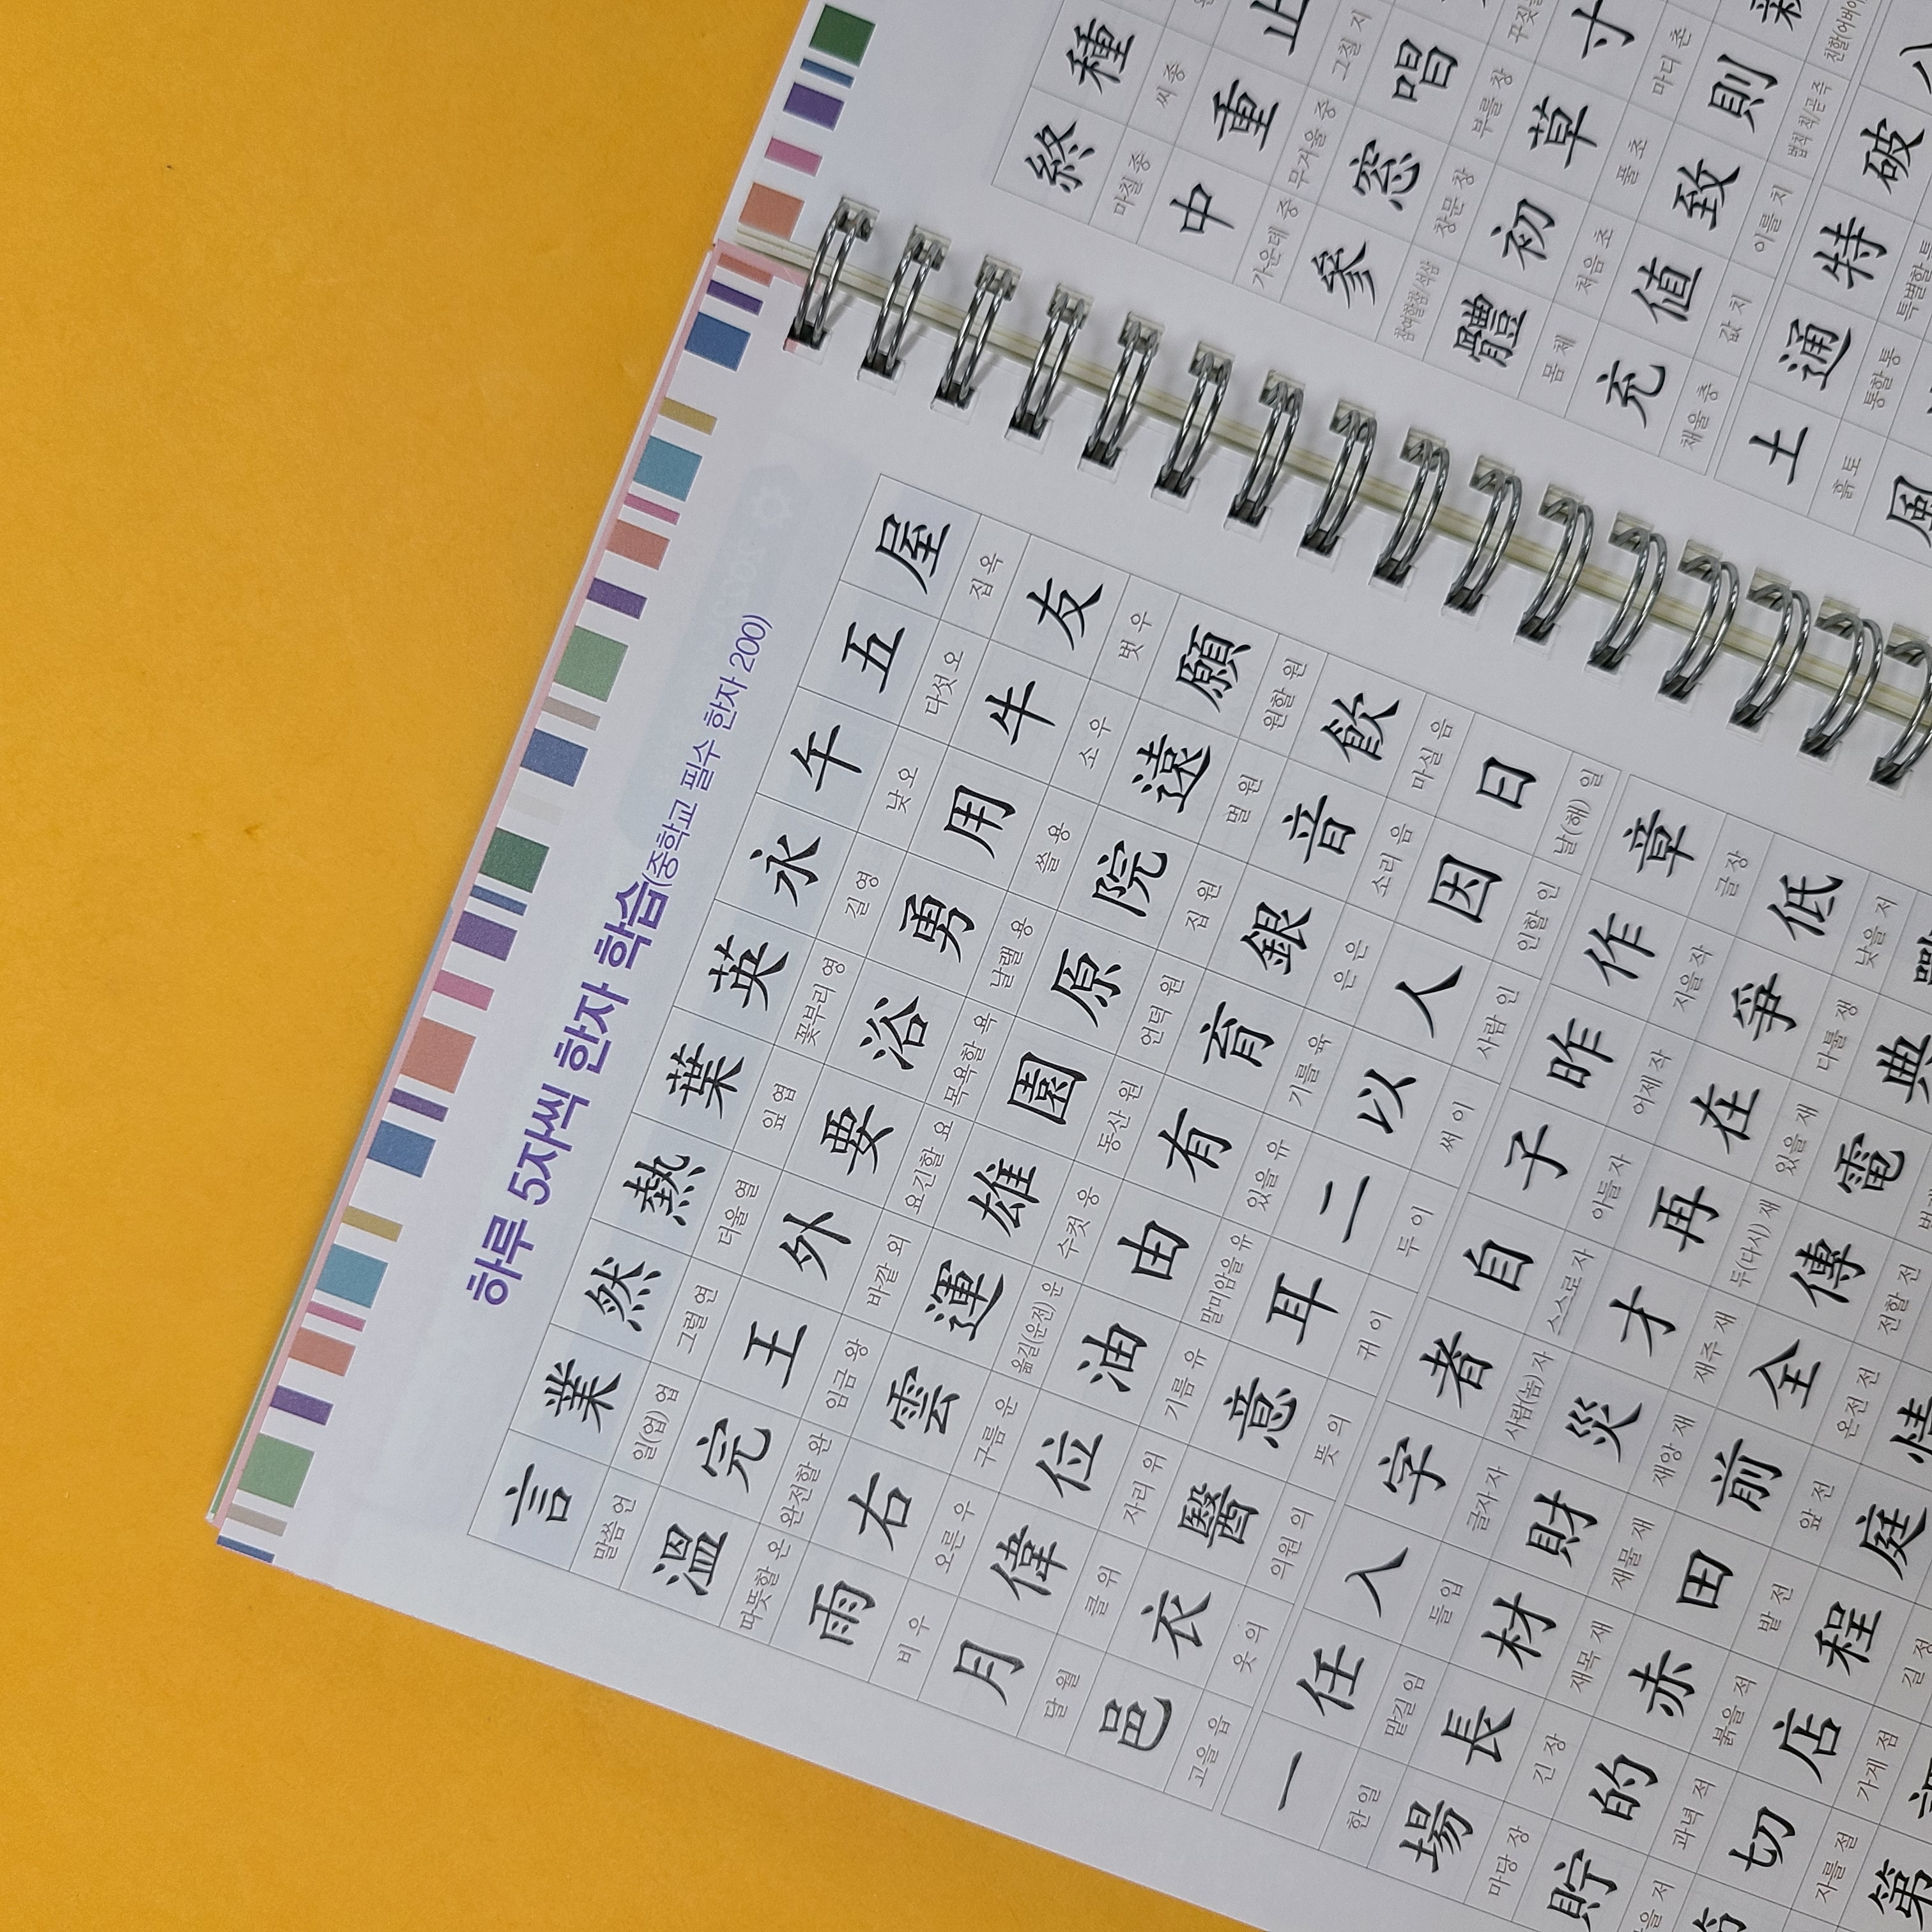 하루 5자씩 한자 학습(중학교 필수 한자 200)
言 業 然 熱 葉 英 永 午 五 屋
말씀 언 일(업) 업 그럴 연 더울 열 잎 엽 꽃부리 영 길 영 낮 오 다섯 오 집 옥
溫 完 王 外 要 浴 勇 用 牛 友
따뜻할 온 완전할 완 임금 왕 바깥 외 요긴할 요 목욕할 욕 날랠 용 쓸 용 소 우 벗 우
雨 右 雲 運 雄 園 原 院 遠 願
비 우 오른 우 구름 운 옮길(운전) 운 수컷 웅 동산 원 언덕 원 집 원 멀 원 원할 원
月 偉 位 油 由 有 育 銀 音 飮
달 월 클 위 자리 위 기름 유 말미암을 유 있을 유 기를 육 은 은 소리 음 마실 음
邑 衣 醫 意 耳 二 以 人 因 日
고을 읍 옷 의 의원 의 뜻 의 귀 이 두 이 써 이 사람 인 인할 인 날(해) 일
一 任 入 字 者 自 子 昨 作 章
한 일 맡길 임 들 입 글자 자 사람(놈) 자 스스로 자 아들 자 어제 작 지을 작 글 장
場 長 材 財 災 才 再 在 爭 低
마당 장 긴 장 재목 재 재물 재 재앙 재 재주 재 두(다시) 재 있을 재 다툴 쟁 낮을 저
貯 的 赤 田 前 全 傳 電 典
저 과녁 적 붉을 적 밭 전 앞 전 온전 전 전할 전
切 店 程 庭 情
자를 절 가게 점 길 정
第
終 種
마칠 종 씨 종
中 重 止
가운데 중 무거울 중 그칠 지
參 窓 唱
참여할참/석삼 창문 창 부를 창
體 初 草 寸
몸 체 처음 초 풀 초 마디 촌
充 値 致 則
채울 충 값 치 이를 치 법칙 칙/곧 즉
土 通 特 破
흙 토 통할 통 특별할 특
風